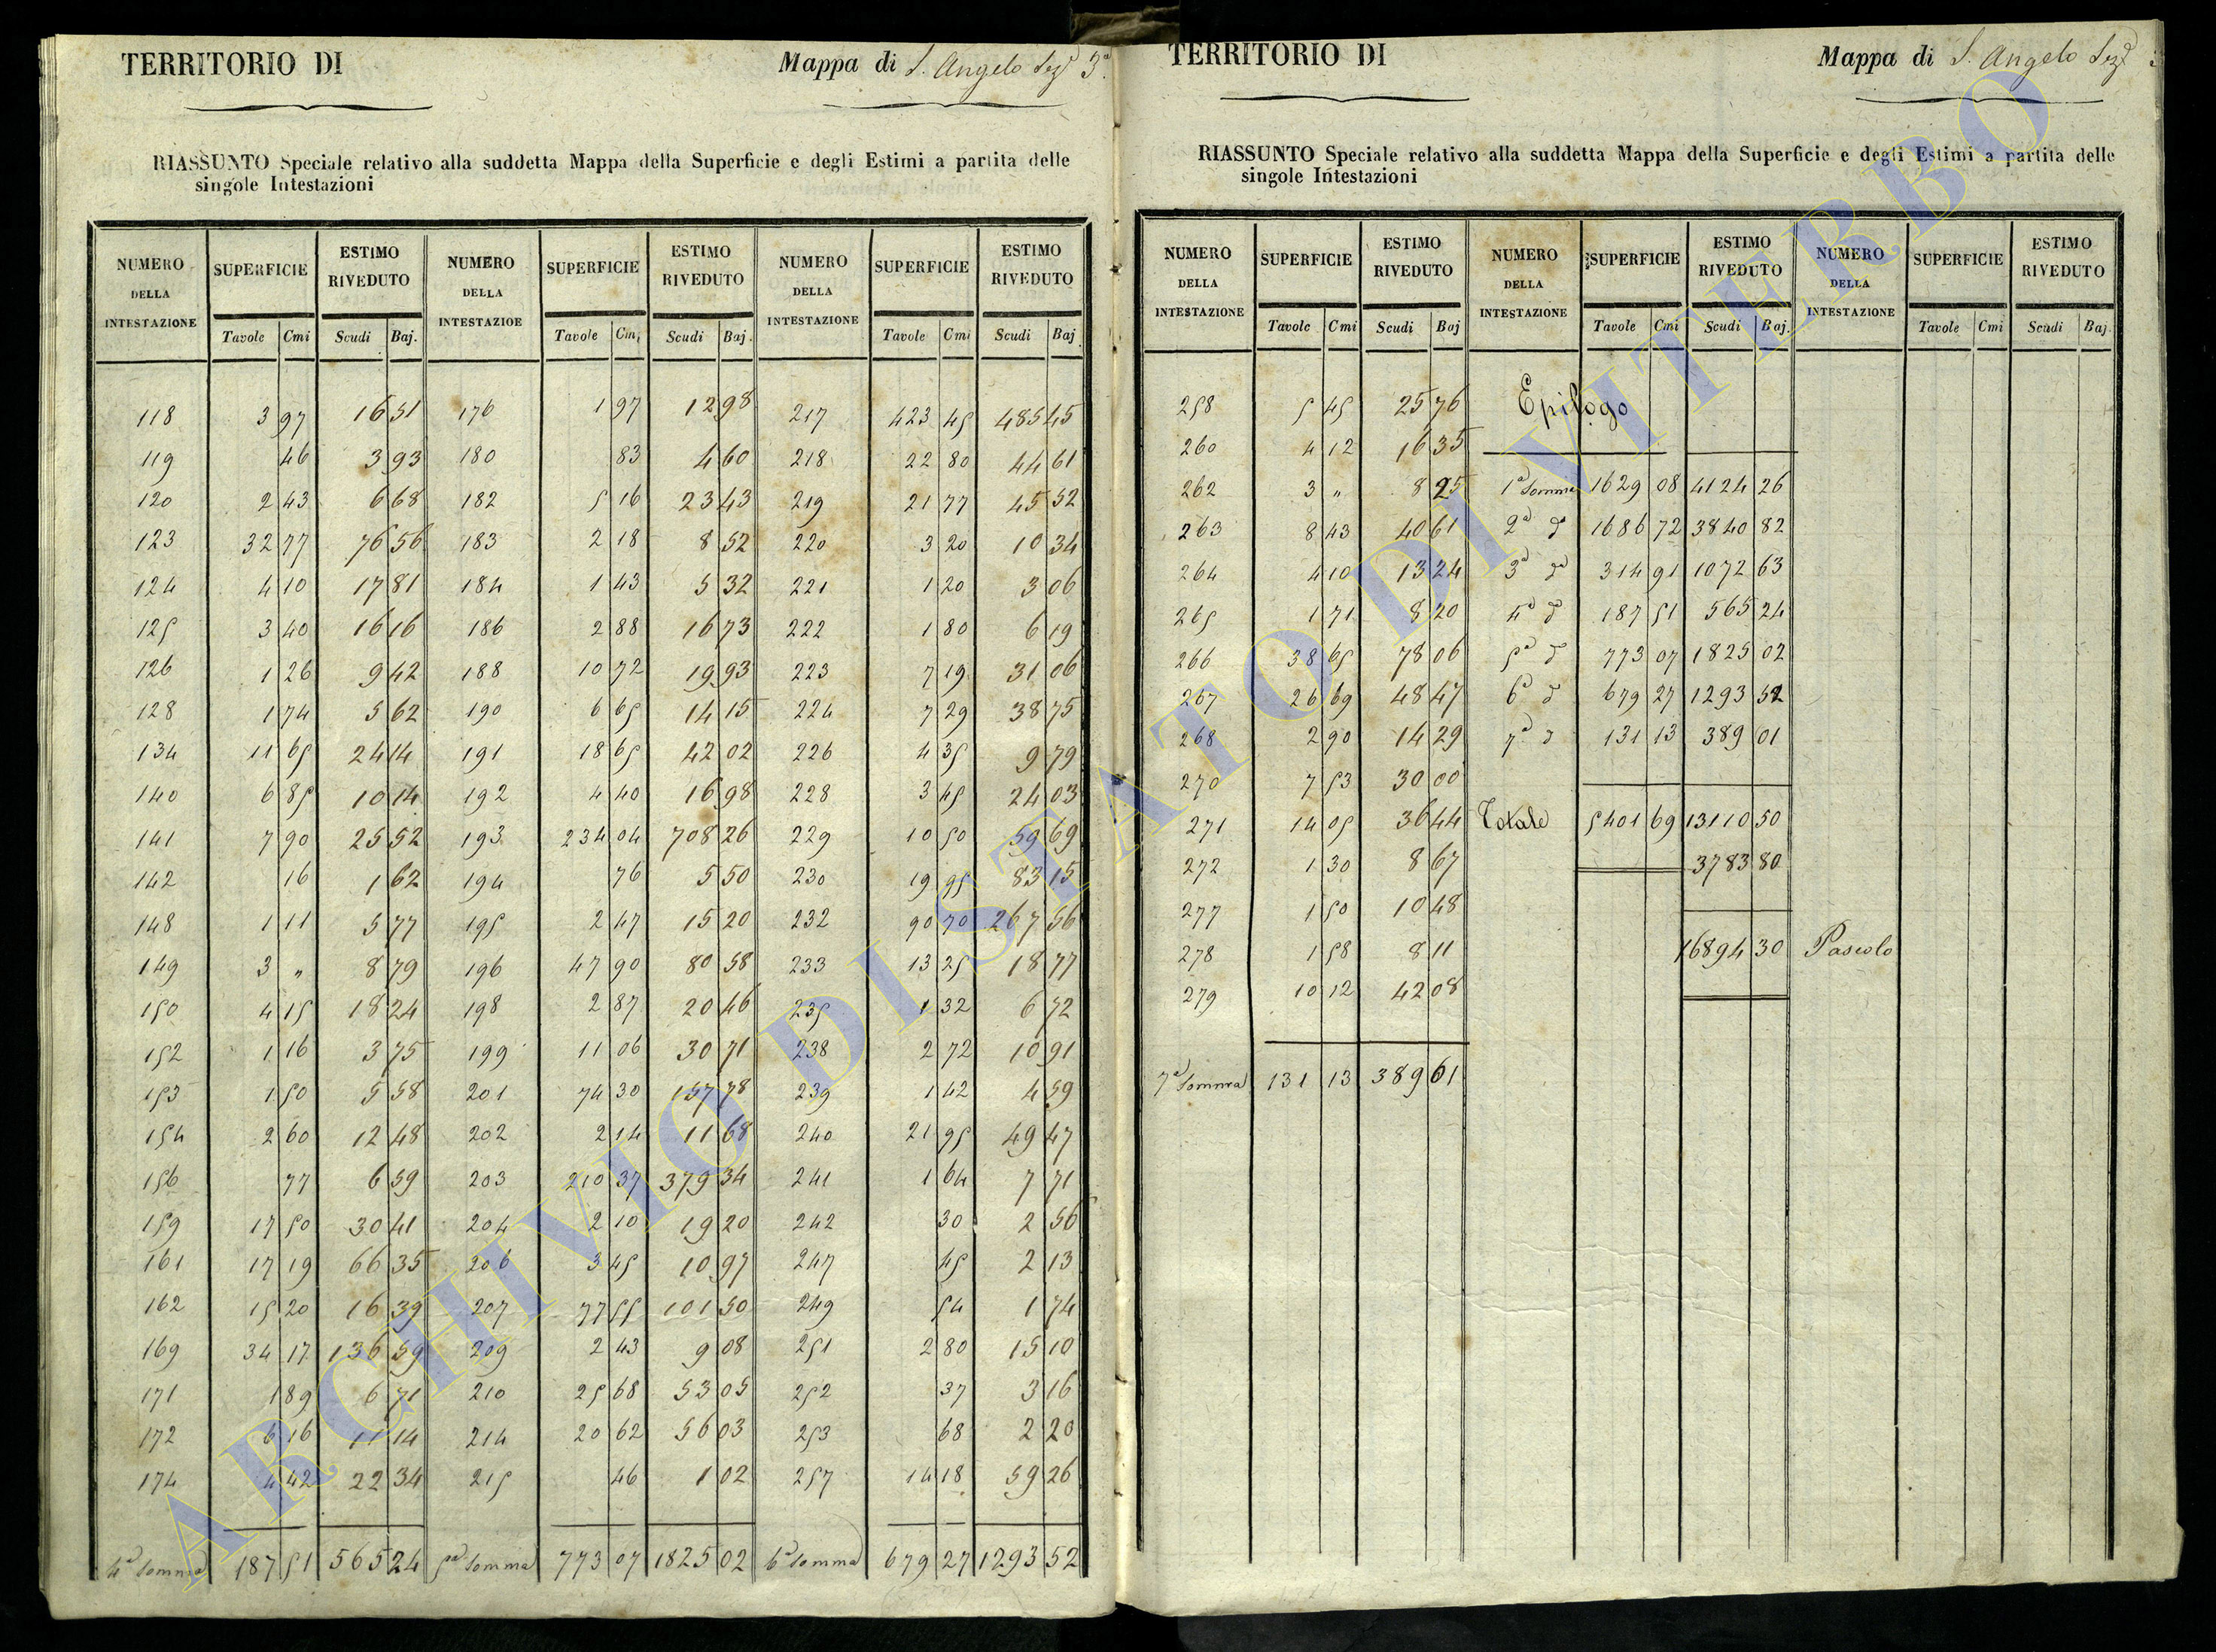 TERRITORIO DI
Mappa di S. Angelo Sez.e 3a
RIASSUNTO Speciale relativo alla suddetta Mappa della Superficie e degli Estimi a partita delle
singole Intestazioni
NUMERO DELLA INTESTAZIONE SUPERFICIE ESTIMO RIVEDUTO NUMERO DELLA INTESTAZIOE SUPERFICIE ESTIMO RIVEDUTO NUMERO DELLA INTESTAZIONE SUPERFICIE ESTIMO RIVEDUTO
Tavole Cmi Scudi Baj. Tavole Cmi Scudi Baj. Tavole Cmi Scudi Baj.
118 3 97 16 51 176 1 97 12 98 217 423 45 485 45
119 46 3 93 180 83 4 60 218 22 80 44 61
120 2 43 6 68 182 5 16 23 43 219 21 77 45 52
123 32 77 76 56 183 2 18 8 52 220 3 20 10 34
124 4 10 17 81 184 1 43 5 32 221 1 20 3 06
125 3 40 16 16 186 2 88 16 73 222 1 80 6 19
126 1 26 9 42 188 10 72 19 93 223 7 19 31 06
128 1 74 5 62 190 6 65 14 15 224 7 29 38 75
134 11 65 24 14 191 18 65 42 02 226 4 35 9 79
140 6 85 10 14 192 4 40 16 98 228 3 45 24 03
141 7 90 25 52 193 234 04 708 26 229 10 50 59 69
142 16 1 62 194 76 5 50 230 19 95 83 15
148 1 11 5 77 195 2 47 15 20 232 90 70 267 56
149 3 „ 8 79 196 47 90 80 58 233 13 25 18 77
150 4 15 18 24 198 2 87 20 46 235 1 32 6 72
152 1 16 3 75 199 11 06 30 71 238 2 72 10 91
153 1 50 5 58 201 74 30 157 78 239 1 42 4 59
154 2 60 12 48 202 2 14 11 68 240 21 95 49 47
156 77 6 59 203 210 37 379 34 241 1 64 7 71
159 17 50 30 41 204 2 10 19 20 242 30 2 56
161 17 19 66 35 206 3 45 10 97 247 45 2 13
162 15 20 16 39 207 77 55 101 50 249 54 1 74
169 34 17 136 59 209 2 43 9 08 251 2 80 15 10
171 1 89 6 71 210 25 68 53 05 252 37 3 16
172 6 16 11 14 214 20 62 56 03 253 68 2 20
174 4 42 22 34 215 46 1 02 257 14 18 59 26
4a Somma 187 51 565 24 5a Somma 773 07 1825 02 6a Somma 679 27 1293 52
TERRITORIO DI
Mappa di S. Angelo Sez.e 3
RIASSUNTO Speciale relativo alla suddetta Mappa della Superficie e degli Estimi a partita delle
singole Intestazioni
NUMERO DELLA INTESTAZIONE SUPERFICIE ESTIMO RIVEDUTO NUMERO DELLA INTESTAZIONE SUPERFICIE ESTIMO RIVEDUTO NUMERO DELLA INTESTAZIONE SUPERFICIE ESTIMO RIVEDUTO
Tavole Cmi Scudi Baj Tavole Cmi Scudi Baj. Tavole Cmi Scudi Baj.
258 5 45 25 76 Epilogo
260 4 12 16 35
262 3 „ 8 25 1a Somma 1629 08 4124 26
263 8 43 40 61 2a da 1686 72 3840 82
264 4 10 13 24 3a da 314 91 1072 63
265 1 71 8 20 4a da 187 51 565 24
266 38 65 78 06 5a da 773 07 1825 02
267 26 69 48 47 6a da 679 27 1293 52
268 2 90 14 29 7a da 131 13 389 01
270 7 53 30 00
271 14 05 36 44 Totale 5401 69 13110 50
272 1 30 8 67 3783 80
277 1 50 10 48
278 1 58 8 11 16894 30 Pascolo
279 10 12 42 08
7a Somma 131 13 389 01
ARCHIVIO DI STATO DI VITERBO